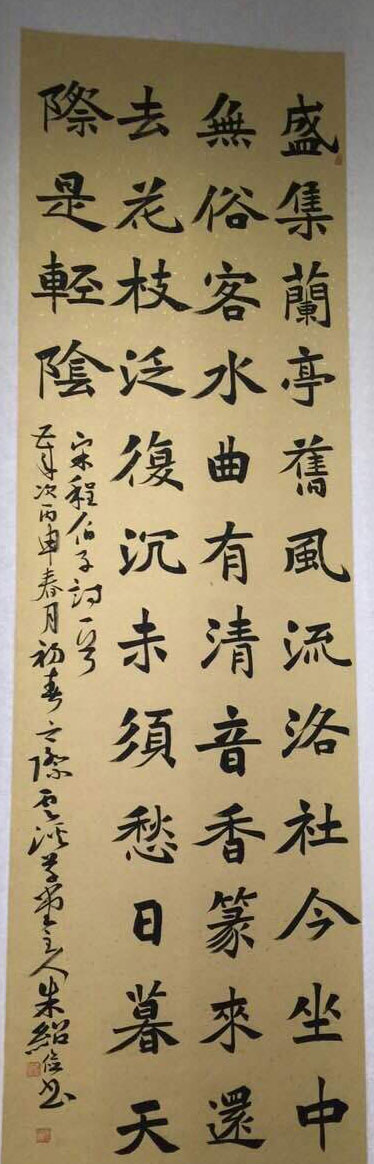 盛集蘭亭舊風流洛社今坐中
無俗客水曲有清音香篆來還
去花枝泛復沉未須愁日暮天
際是輕陰
宋程伯子詩一首
年次丙申春月初春之際雲淡草堂主人朱紹信书